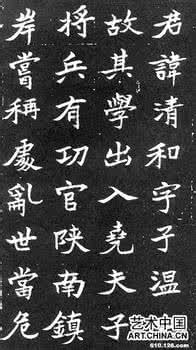 君諱清和字子温
故其學出入堯夫子
将兵有功官陕南鎮
岸嘗稱處亂世當危
艺术中国
ART.CHINA.CN